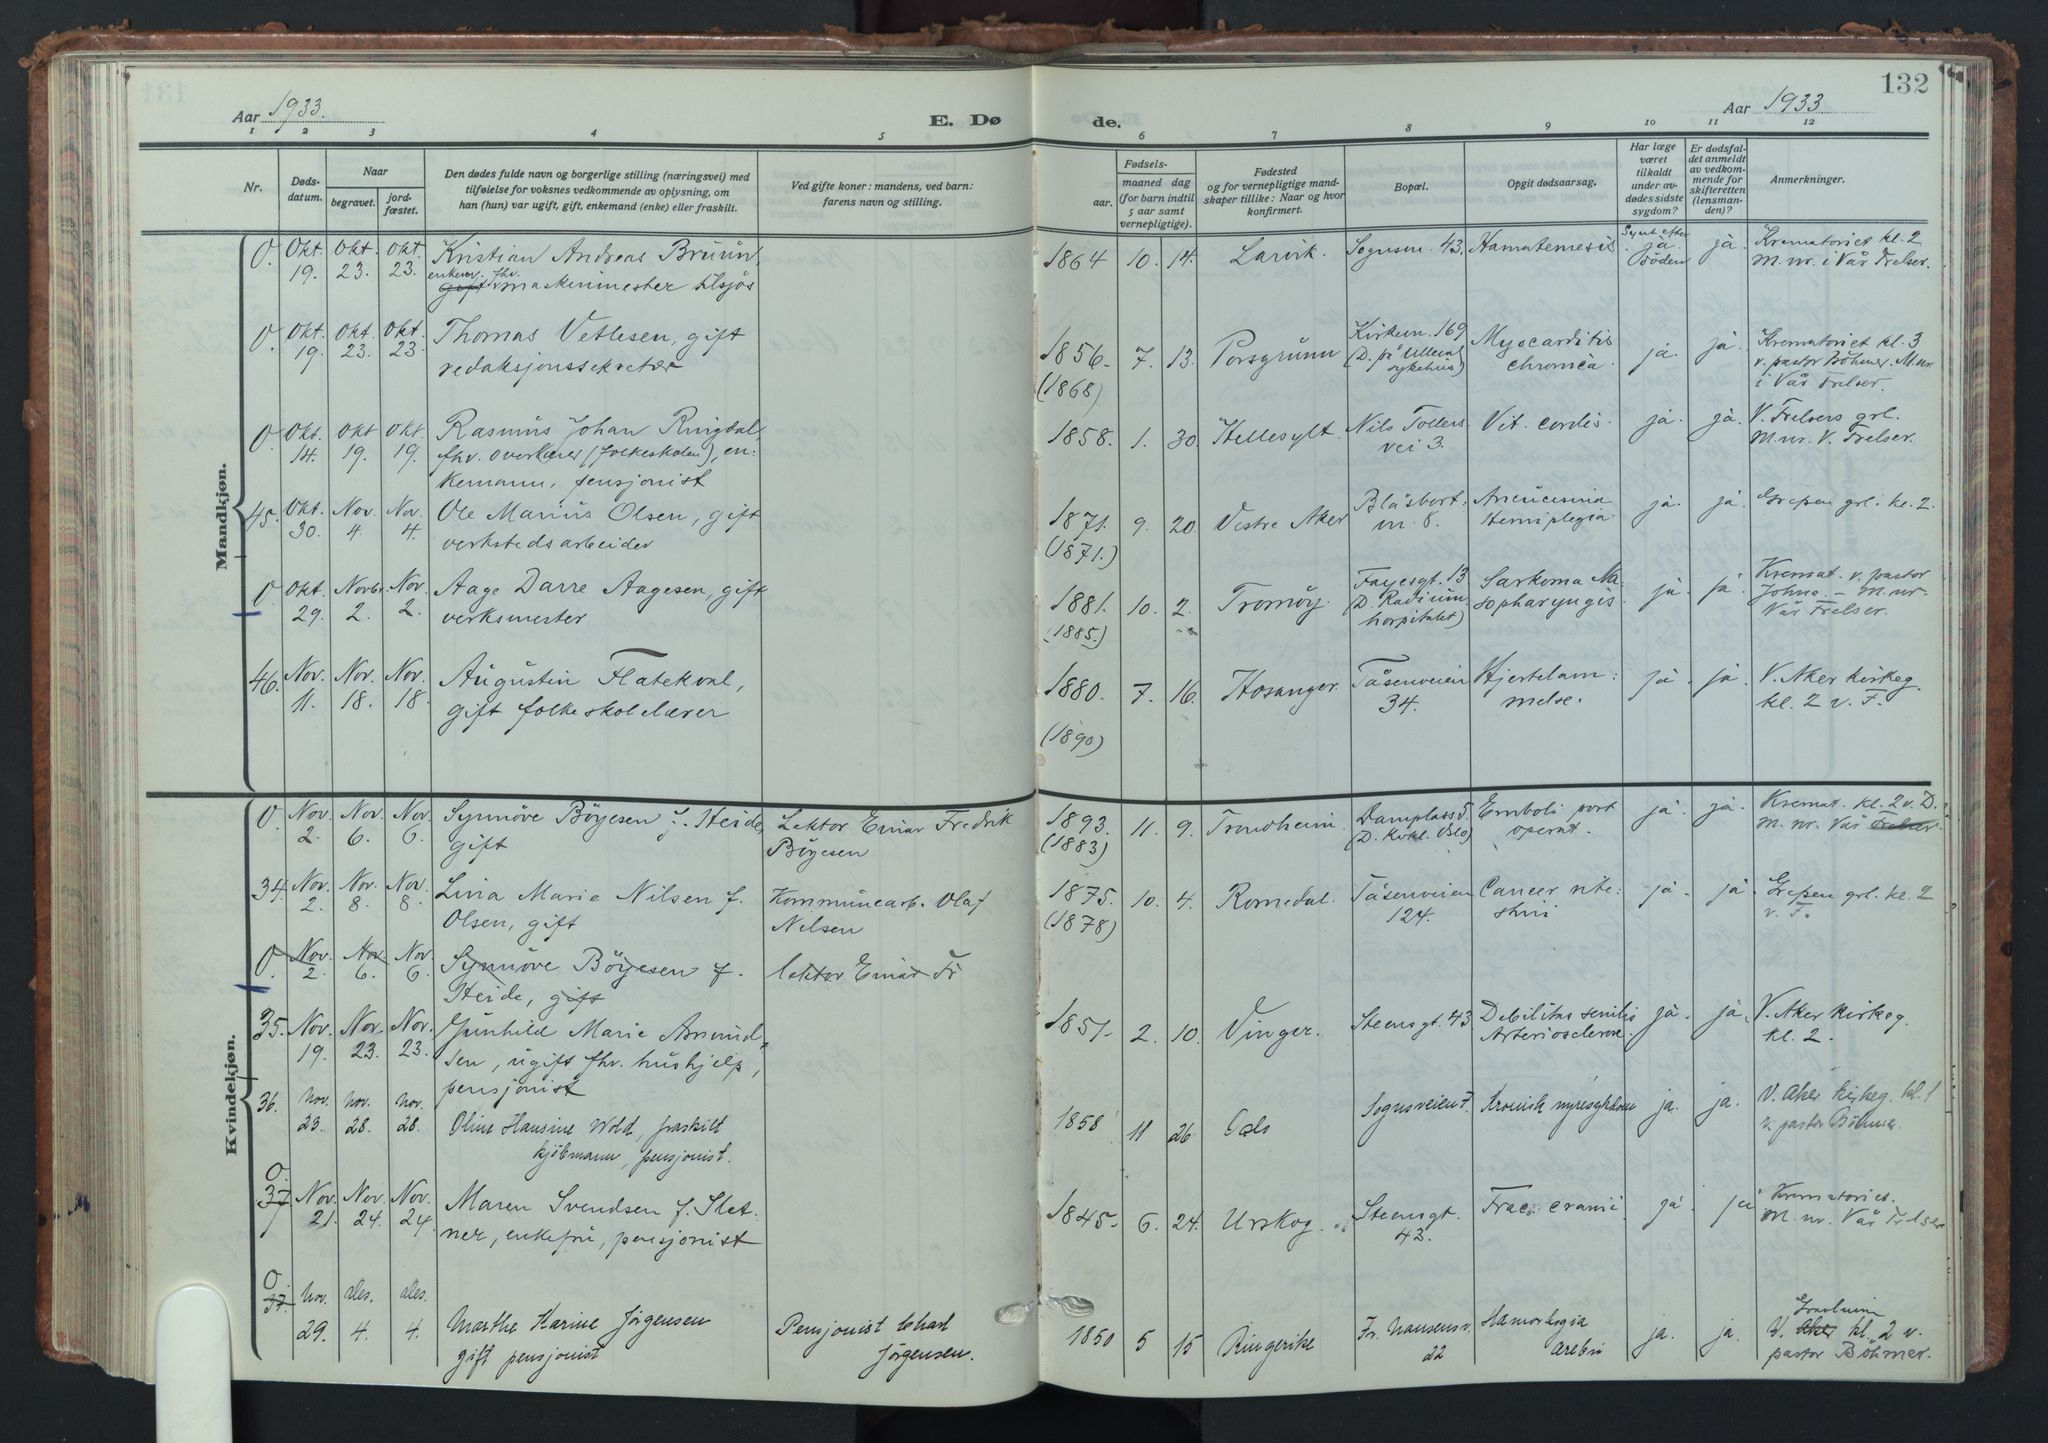 132
Aar 1933.
E. Døde.
Aar 1933
1 2 3 4 5 6 7 8 9 10 11 12
Nr.
Døds-
datum.
Naar
begravet.
jord-
fæstet.
Den dødes fulde navn og borgerlige stilling (næringsvei) med
tilføielse for voksnes vedkommende av oplysning, om
han (hun) var ugift, gift, enkemand (enke) eller fraskilt.
Ved gifte koner: mandens, ved barn:
farens navn og stilling.
Fødsels-
aar.
maaned dag
(for barn indtil
5 aar samt
vernepligtige).
Fødested
og for vernepligtige mand-
skaper tillike: Naar og hvor
konfirmert.
Bopæl.
Opgit dødsaarsag.
Har læge
været
tilkaldt
under av-
dødes sidste
sygdom?
Er dødsfal-
det anmeldt
av vedkom-
mende for
skifteretten
(lensman-
den)?
Anmerkninger.
Mandkjøn.
0. Okt. 19. Okt. 23. Okt. 23. Kristian Andreas Bruun,
enkem. fhv.
gift maskinmester tilsjøs
1864 10. 14. Larvik. Sognsv. 43. Hamatemesis Synt efter ja. döden ja. Krematoriet kl. 2
M. nr. i Vår Frelser.
0. Okt. 19. Okt. 23. Okt. 23. Thomas Vetlesen, gift
redaksjonssekretær
1856. (1868) 7. 13. Porsgrunn Kirkevn. 169
(D. på Ullevål
sykehus)
Myocarditis
chronica.
ja. ja. Krematoriet kl. 3
v. pastor Böhmer. M.nr.
i Vår Frelser.
0 Okt. 14. Okt. 19. Okt. 19. Rasmus Johan Ringdal,
fhv. overlærer (folkeskolen), en-
kemann, pensjonist
1858. 1. 30. Hellesylt. Nils Tollers
vei 3.
Vit. cordis. ja. ja. V. Frelsers grl.
M.nr. V. Frelser.
45. Okt. 30. Nov. 4. Nov. 4. Ole Marius Olsen, gift
verkstedsarbeider
1871. (1871.) 9. 20 Vestre Aker
Hemiplegia. ja. ja. Grefsen grl. kl. 2.
0. Okt. 29. Novbr. 2. Nov. 2. Aage Darre Aagesen, gift
verksmester
1881. (1885.) 10. 2. Tromöy. Fayesgt. 13
(D. Radium-
hospitalet)
Sarkoma Na-
sopharyngis.
ja. ja. Kremat. v. pastor
M.nr.
Vår Frelser.
46. Nov. 11. Nov. 18. Nov. 18. Augustin Flatekval,
gift folkeskolelærer
1880. (1890) 7. 16. Hosanger. Tåsenveien
34.
Hjertelam-
melse.
ja. ja. V. Aker kirkeg.
kl. 2 v. F.
Kvindekjøn.
0. Nov. 2. Nov. 6. Nov. 6. Synnöve Böyesen f. Heide,
gift
Lektor Einar Fredrik
Böyesen
1893. (1883) 11. 9. Trondheim. Damplass 5.
Emboli post
operat.
ja. ja. Kremat. kl. 2 v. D.
M. nr. Vår Frelser.
34. Nov. 2. Nov. 8. Nov. 8. Lina Marie Nilsen f.
Olsen, gift
Kommunearb. Olaf
Nilsen
1875. (1878) 10. 4. Romedal. Tåsenveien
124.
Cancer
ja. ja. Grefsen grl. kl. 2
v. F.
0. Nov. 2. Nov. 6. Nov. 6. Synnöve Böyesen f.
Heide, gift
lektor Einar Fr
35. Nov. 19. Nov. 23. Nov. 23. Gunhild Marie Amund-
sen, ugift fhv. hushjelp,
pensjonist
1851. 2. 10. Vinger. Steensgt. 43. Debilitas senilis
Arteriosclerose.
ja. ja. V. Aker kirkeg.
kl. 2.
36. Nov. 23. Nov. 28. Nov. 28. Oline Hansine Wold, fraskilt
kjöbmann, pensjonist.
1858 11 26 Oslo Sognsveien 7. Kronisk nyresykdom ja. ja. V. Aker kirkeg. kl. 1
v. pastor Böhmer.
0. 37 Nov. 21. Nov. 24. Nov. 24. Maren Svendsen f. Slet-
ner, enkefru, pensjonist
1845. 6. 24. Urskog. Steensgt.
43.
Frac. cranii ja. ja Krematoriet.
M. nr. Vår Frelser
0. 37. Nov. 29. des. 4. des. 4. Marthe Karine Jörgensen
gift pensjonist
Pensjonist Chast
Jörgensen.
1850 5 15 Ringerike Fr. Nansens v.
22
Hæmorhagia
cerebri
ja. ja. V. Aker kl. 2 v.
pastor Böhmer.